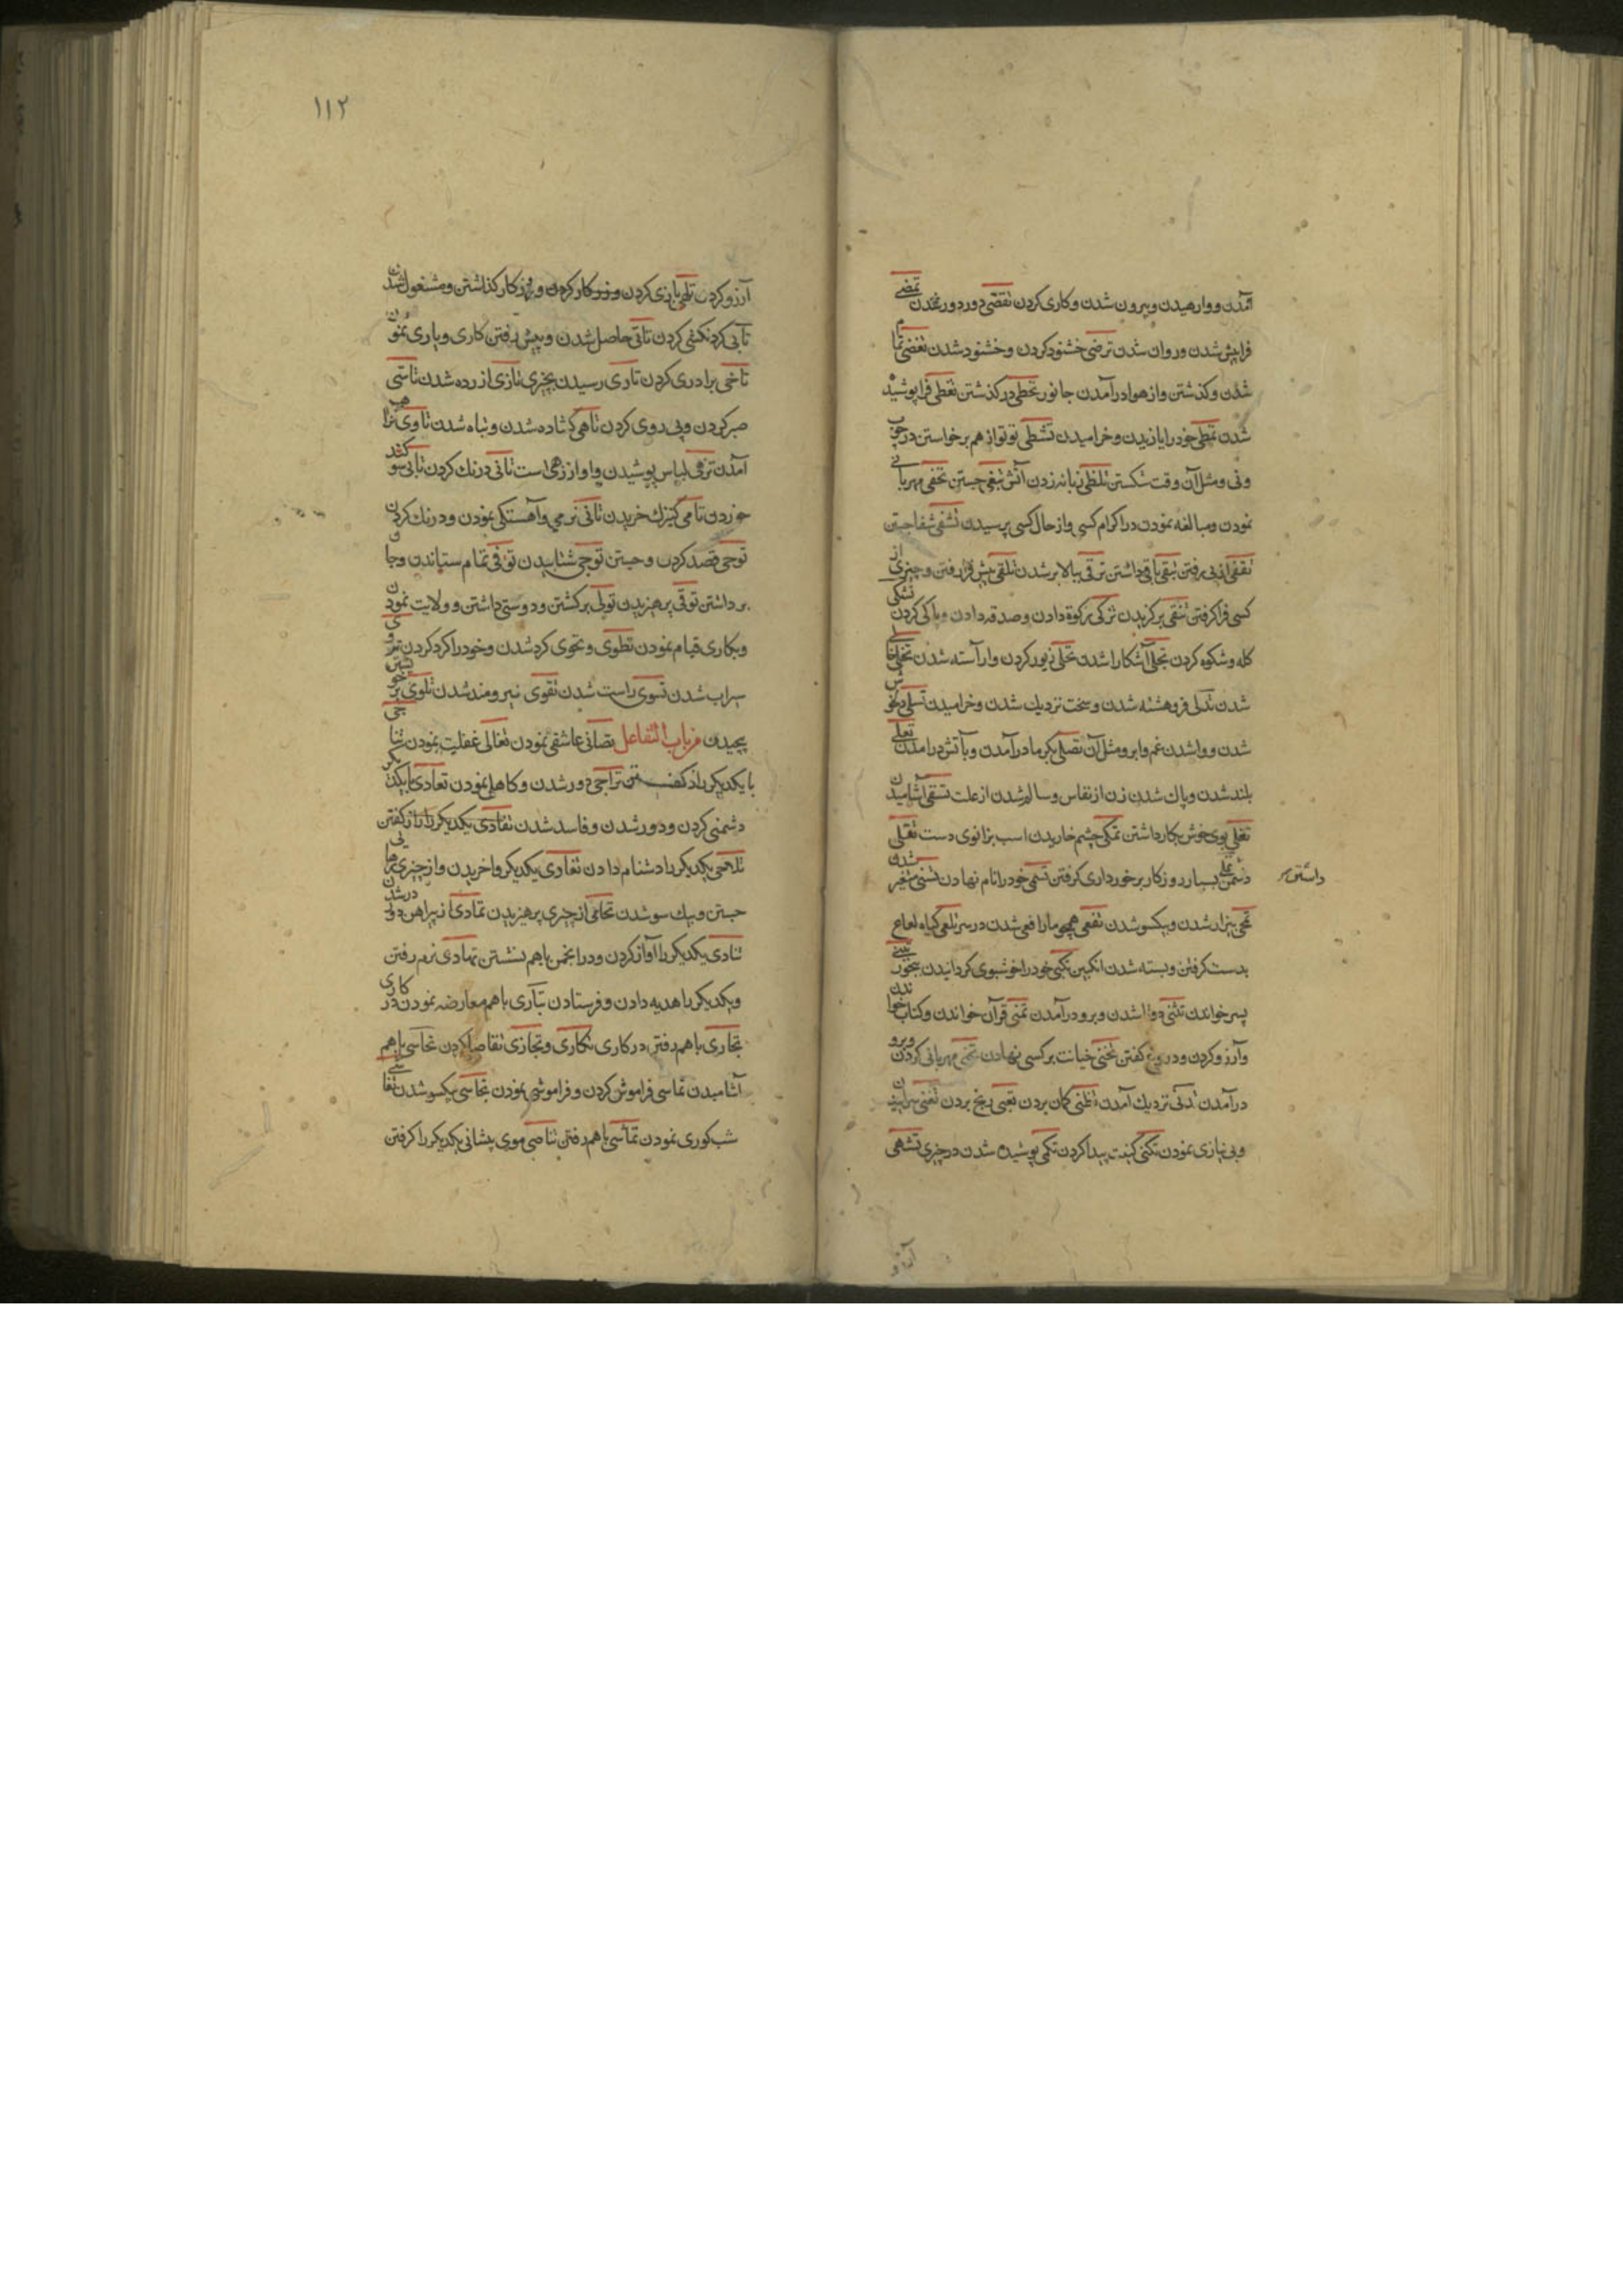 آمدن و وارهیدن و بیرون شدن و کاری کردن تقضی دور دور شدن تمضی
فراپیش شدن و روان شدن ترضی خشنود کردن و خشنود شدن تغضی تمام
شدن و کذشتن و از هوا در آمدن جانور تخطی در کذشتن تغطی فرا پوشیده
شدن تمطی خود را یازیدن و خرامیدن تشظی تو تو از هم برخواستن در چوب
ونی و مثل آن وقت شکستن تلظی زبانه زدن آتش تبغی جستن تحفی مهربانی
نمودن و مبالغه نمودن در اکرام کسی و از حال کسی پرسیدن تشفی شفا جستن
تقفی از پی رفتن تبقی باقی داشتن ترقی ببالا بر شدن تلقی پیش فرا رفتن و چیزی از
کسی فرا کرفتن تنقی بر کزیدن تزکی زکوة دادن و صدقه دادن و پاکی کردن تشکی
کله و شکوه کردن تجلی آشکارا شدن تحلی زیور کردن و آراسته شدن تخلی
شدن تدلی فروهشته شدن و سخت نزدیک شدن و خرامیدن تسلی دلخوش
شدن و وا شدن غم و ابر و مثل آن تصلی بکرما در آمدن و بآتش در آمدن تعلی
بلند شدن و پاک شدن زن از نفاس و سالم شدن از علت تسقی آشامیدن
تغلی بوی خوش بکار داشتن تمکی چشم خاریدن اسب بزانوی دست تقلی
دشمن داشتن تملی بسیار روزکار برخورداری کرفتن تسمی خود را نام نهادن تسنی متغیر شدن
داشتن
بیزار شدن و یکسو شدن تفعی همچو مار افعی شدن در سر تلعی کیاه لعاع
بدست کرفتن و بسته شدن انکبین تکبی خود را خوشبوی کردانیدن ببخور تبنی
پسر خواندن تثنی دوتا شدن و برو در آمدن تمنی قرآن خواندن و کتاب خواندن
و آرزو کردن و دروغ کفتن تجنی خیانت بر کسی نهادن تحنی مهربانی کردن و برو
در آمدن تدنی نزدیک آمدن تظنی کمان بردن تعنی رنج بردن تغنی سراییدن
و بی نیازی نمودن تکنی کنیت پیدا کردن تکمی پوشیده شدن در چیزی تشهی
آرزو
۱۱۲
آرزو کردن تلهی بازی کردن و روزکار کذاشتن و مشغول شدن
تأبی کردنکشی کردن تأتی حاصل شدن و پیش رفتن کاری و یاری نمودن
تأخی برادری کردن تأدی رسیدن بچیزی تأذی آزرده شدن تأسی
صبر کردن و پی روی کردن تأهی کشاده شدن و تباه شدن تأوی فراهم
آمدن تزهی لباس پوشیدن تأنی درنک کردن تألی سوکند
خوردن تأمی کنیزک خریدن تأنی نرمی و آهستکی نمودن و درنک کردن
توخی قصد کردن و جستن توحی شتابیدن توفی تمام ستاندن و جان
برداشتن توقی پرهیزیدن تولی برکشتن و دوستی داشتن و ولایت نمودن
و بکاری قیام نمودن تطوی و تحوی کرد شدن و خود را کرد کردن تروی
سیراب شدن تسوی راست شدن تقوی نیرومند شدن تلوی بر خویشتن
پیچیدن من باب التفاعل تصابی عاشقی نمودن تغابی غفلت نمودن تناجی
با یکدیکر راز کفتن تراخی دور شدن و کاهلی نمودن تعادی با یکدیکر
دشمنی کردن و دور شدن و فاسد شدن تفادی یکدیکر را باز کفتن
تلاحی یکدیکر را دشنام دادن تفادی یکدیکر وا خریدن و از چیزی رهایی
جستن و بیک سو شدن تحامی از چیزی پرهیزیدن تمادی در شدن
تنادی یکدیکر را آواز کردن و در انجمن با هم نشستن تهادی نرم رفتن
و یکدیکر را هدیه دادن و فرستادن تباری با هم معارضه نمودن در کاری
تجاری با هم رفتن در کاری تکاری و تجازی تقاضا کردن تحاسی با هم
آشامیدن تناسی فراموش کردن و فراموشی نمودن تجاسی یکسو شدن تعاشی
شب کوری نمودن تماشی با هم رفتن تناصی موی پیشانی یکدیکر را کرفتن